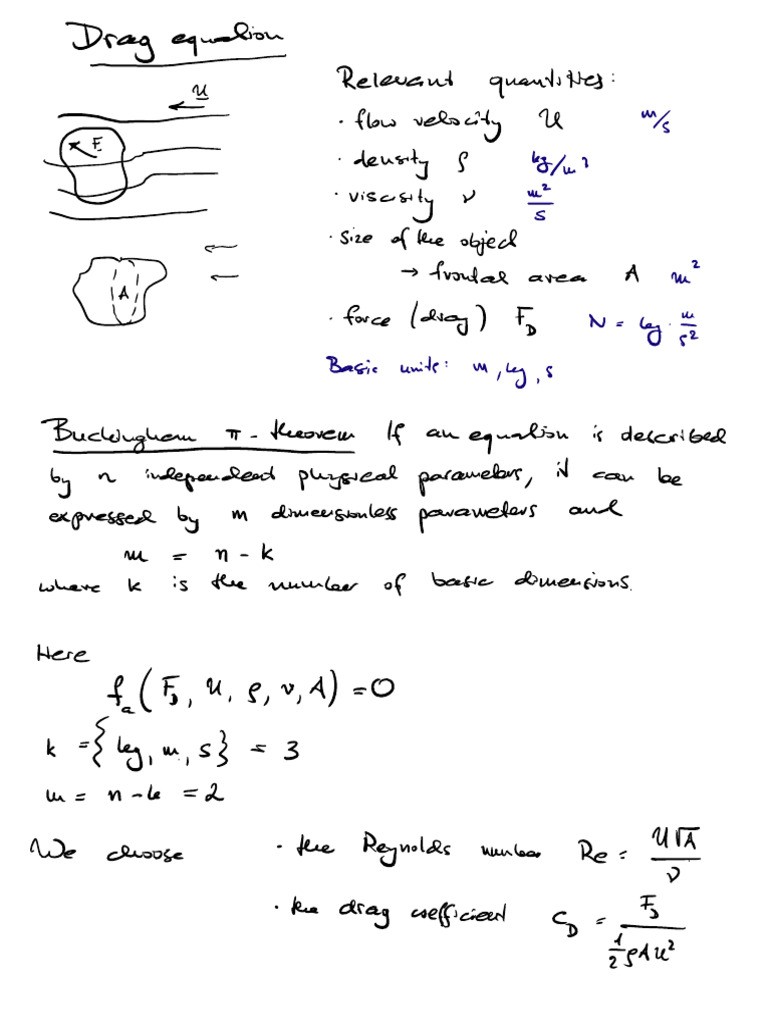 Drag equation
u
F
A
Relevant quantities:
· flow velocity U m/s
· density ρ kg/m³
· viscosity ν m²/s
· size of the object
→ frontal area A m²
· force (drag) F_D N = kg · m/s²
Basic units: m, kg, s
Buckingham π - theorem If an equation is described
by n independent physical parameters, it can be
expressed by m dimensionless parameters and
m = n - k
where k is the number of basic dimensions.
Here
f_a (F_D, U, ρ, ν, A) = 0
k = {kg, m, s} = 3
m = n - k = 2
We choose · the Reynolds number Re = U√A / ν
· the drag coefficient C_D = F_D / ½ρAU²